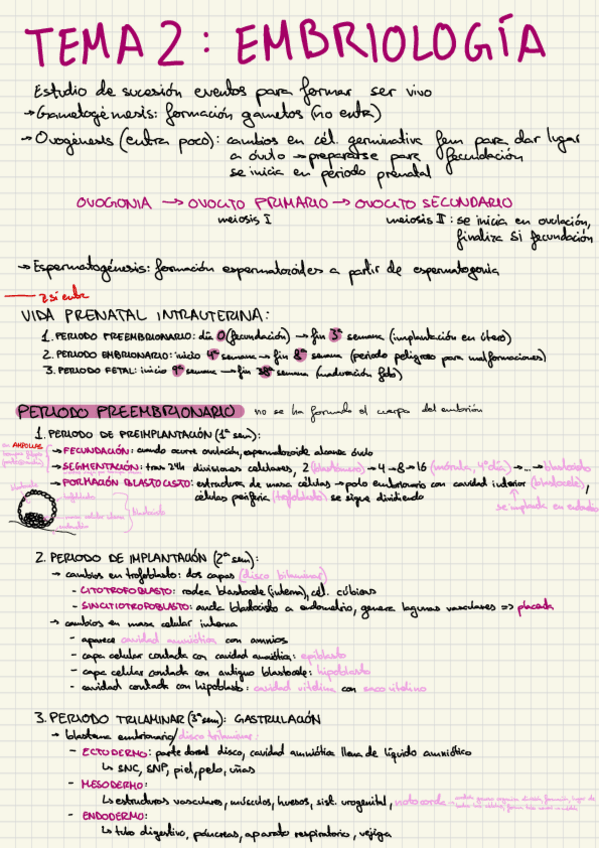 TEMA 2: EMBRIOLOGÍA
Estudio de sucesión eventos para formar ser vivo
→ Gametogénesis: formación gametos (no entra)
→ Ovogénesis (entra poco): cambios en cél. germinativa fem para dar lugar
a óvulo → prepararse para fecundación
se inicia en periodo prenatal
OVOGONIA → OVOCITO PRIMARIO → OVOCITO SECUNDARIO
meiosis I
meiosis II: se inicia en ovulación,
finaliza si fecundación
→ Espermatogénesis: formación espermatozoides a partir de espermatogonia
sí entra
VIDA PRENATAL INTRAUTERINA:
1. PERIODO PREEMBRIONARIO: día 0 (fecundación) → fin 3ª semana (implantación en útero)
2. PERIODO EMBRIONARIO: inicio 4ª semana → fin 8ª semana (periodo peligroso para malformaciones)
3. PERIODO FETAL: inicio 9ª semana → fin 38ª semana (maduración feto)
PERIODO PREEMBRIONARIO no se ha formado el cuerpo del embrión
1. PERIODO DE PREIMPLANTACIÓN (1ª sem):
en AMPOLLAS
→ FECUNDACIÓN: cuando ocurre ovulación, espermatozoide alcanza óvulo
→ SEGMENTACIÓN: tras 24h divisiones celulares, 2 (blastómero) → 4 → 8 → 16 (mórula, 4º día) → ... → blastocisto
→ FORMACIÓN BLASTOCISTO: estructura de masa células → polo embrionario con cavidad interior (blastocele),
células periferia (trofoblasto) se sigue dividiendo
se implanta en endometrio
trofoblasto
masa celular interna
blastocisto
2. PERIODO DE IMPLANTACIÓN (2ª sem):
→ cambios en trofoblasto: dos capas (disco bilaminar)
- CITOTROFOBLASTO: rodea blastocele (interna), cél. cúbicas
- SINCITIOTROFOBLASTO: ancla blastocisto a endometrio, genera lagunas vasculares => placenta
→ cambios en masa celular interna
- aparece cavidad amniótica con amnios
- capa celular contacta con cavidad amniótica: epiblasto
- capa celular contacta con antiguo blastocele: hipoblasto
- cavidad contacta con hipoblasto: cavidad vitelina con saco vitelino
3. PERIODO TRILAMINAR (3ª sem): GASTRULACIÓN
→ blastema embrionario/disco trilaminar:
- ECTODERMO: parte dorsal disco, cavidad amniótica llena de líquido amniótico
↳ SNC, SNP, piel, pelo, uñas
- MESODERMO:
↳ estructuras vasculares, músculos, huesos, sist. urogenital, notocorda →
- ENDODERMO:
↳ tubo digestivo, páncreas, aparato respiratorio, vejiga